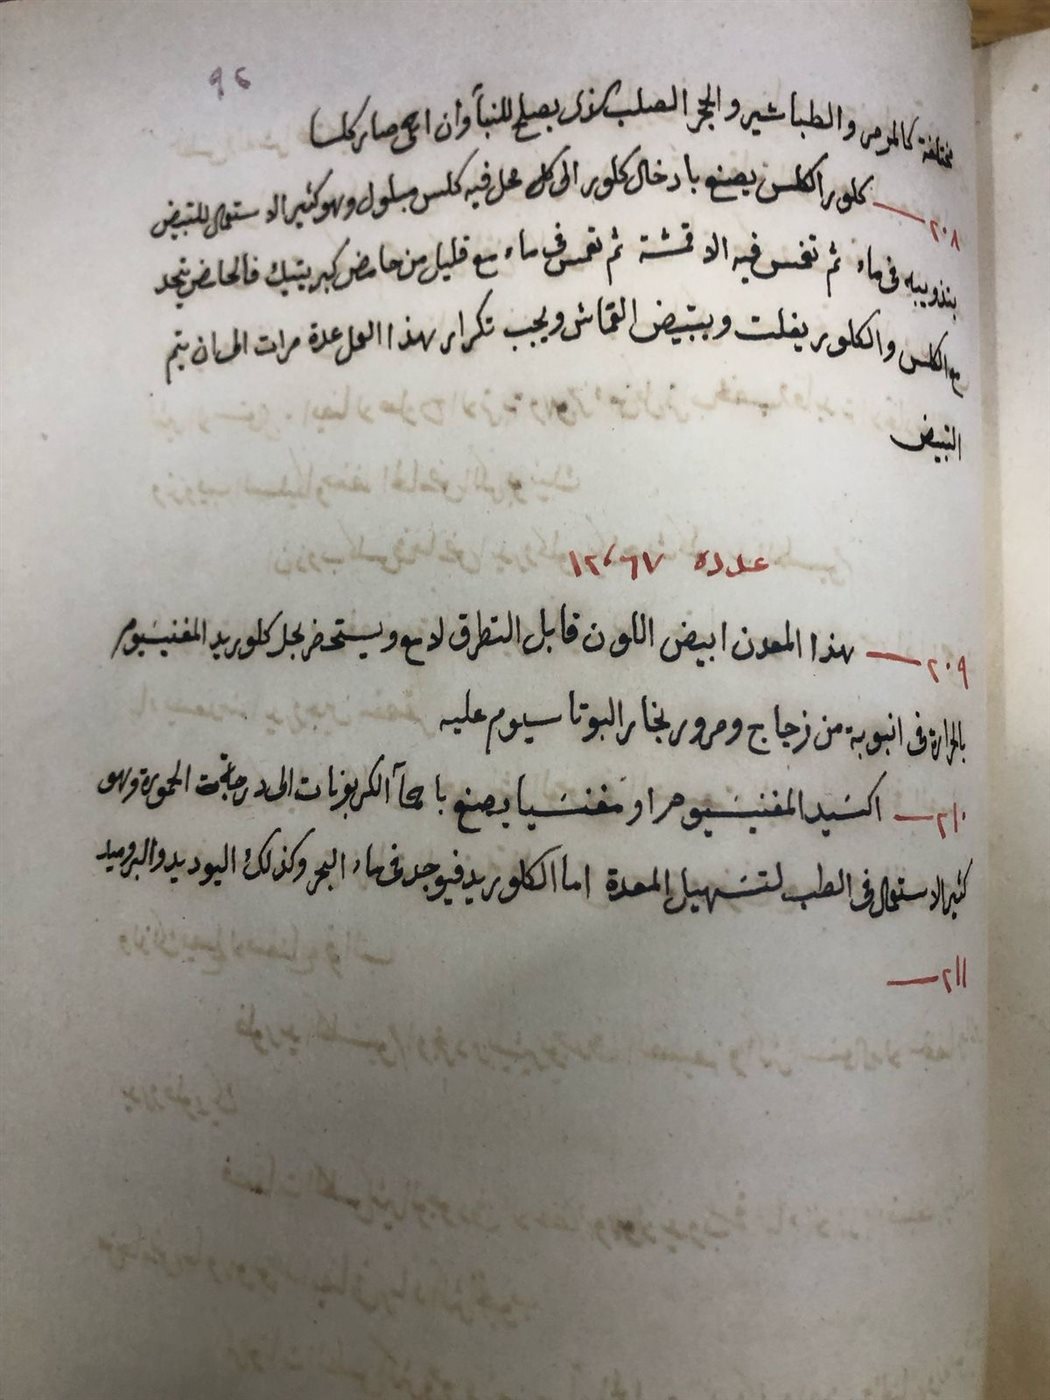 ٩٤
مختلفة كالمرمر والطباشير والحجر الصلب كذى يصلح للنبأ وان احمى صار كلسا
٢٠٨ — كلور الكلس يصنع بادخال كلور الى كل محل فيه كلس مبلول وهو كثير الاستعمال للتبيض
بتذويبه فى ماء ثم تغمس فيه الاقمشة ثم تغمس فى ماء مع قليل من حامض كبريتيك فالحامض يتحد
مع الكلس والكلور يفلت ويبتيض القماش ويجب تكرار هذا العمل عدة مرات الى ان يتم
التبيض
عدده ١٢،٦٧
٢٠٩ — هذا المعدن ابيض اللون قابل التطرق لامع ويستحضر بحل كلوريد المغنيسيوم
بالحرارة فى انبوبة من زجاج ومرور بخار البوتاسيوم عليه
٢١٠ — اكسيد المغنيسيوم او مغنسيا يصنع باحمآ الكربونات الى درجة الحمورة وهو
كثير الاستعمال فى الطب لتسهيل المعدة اما الكلوريد فيوجد فى ماء البحر وكذلك اليوديد والبروميد
٢١١ —